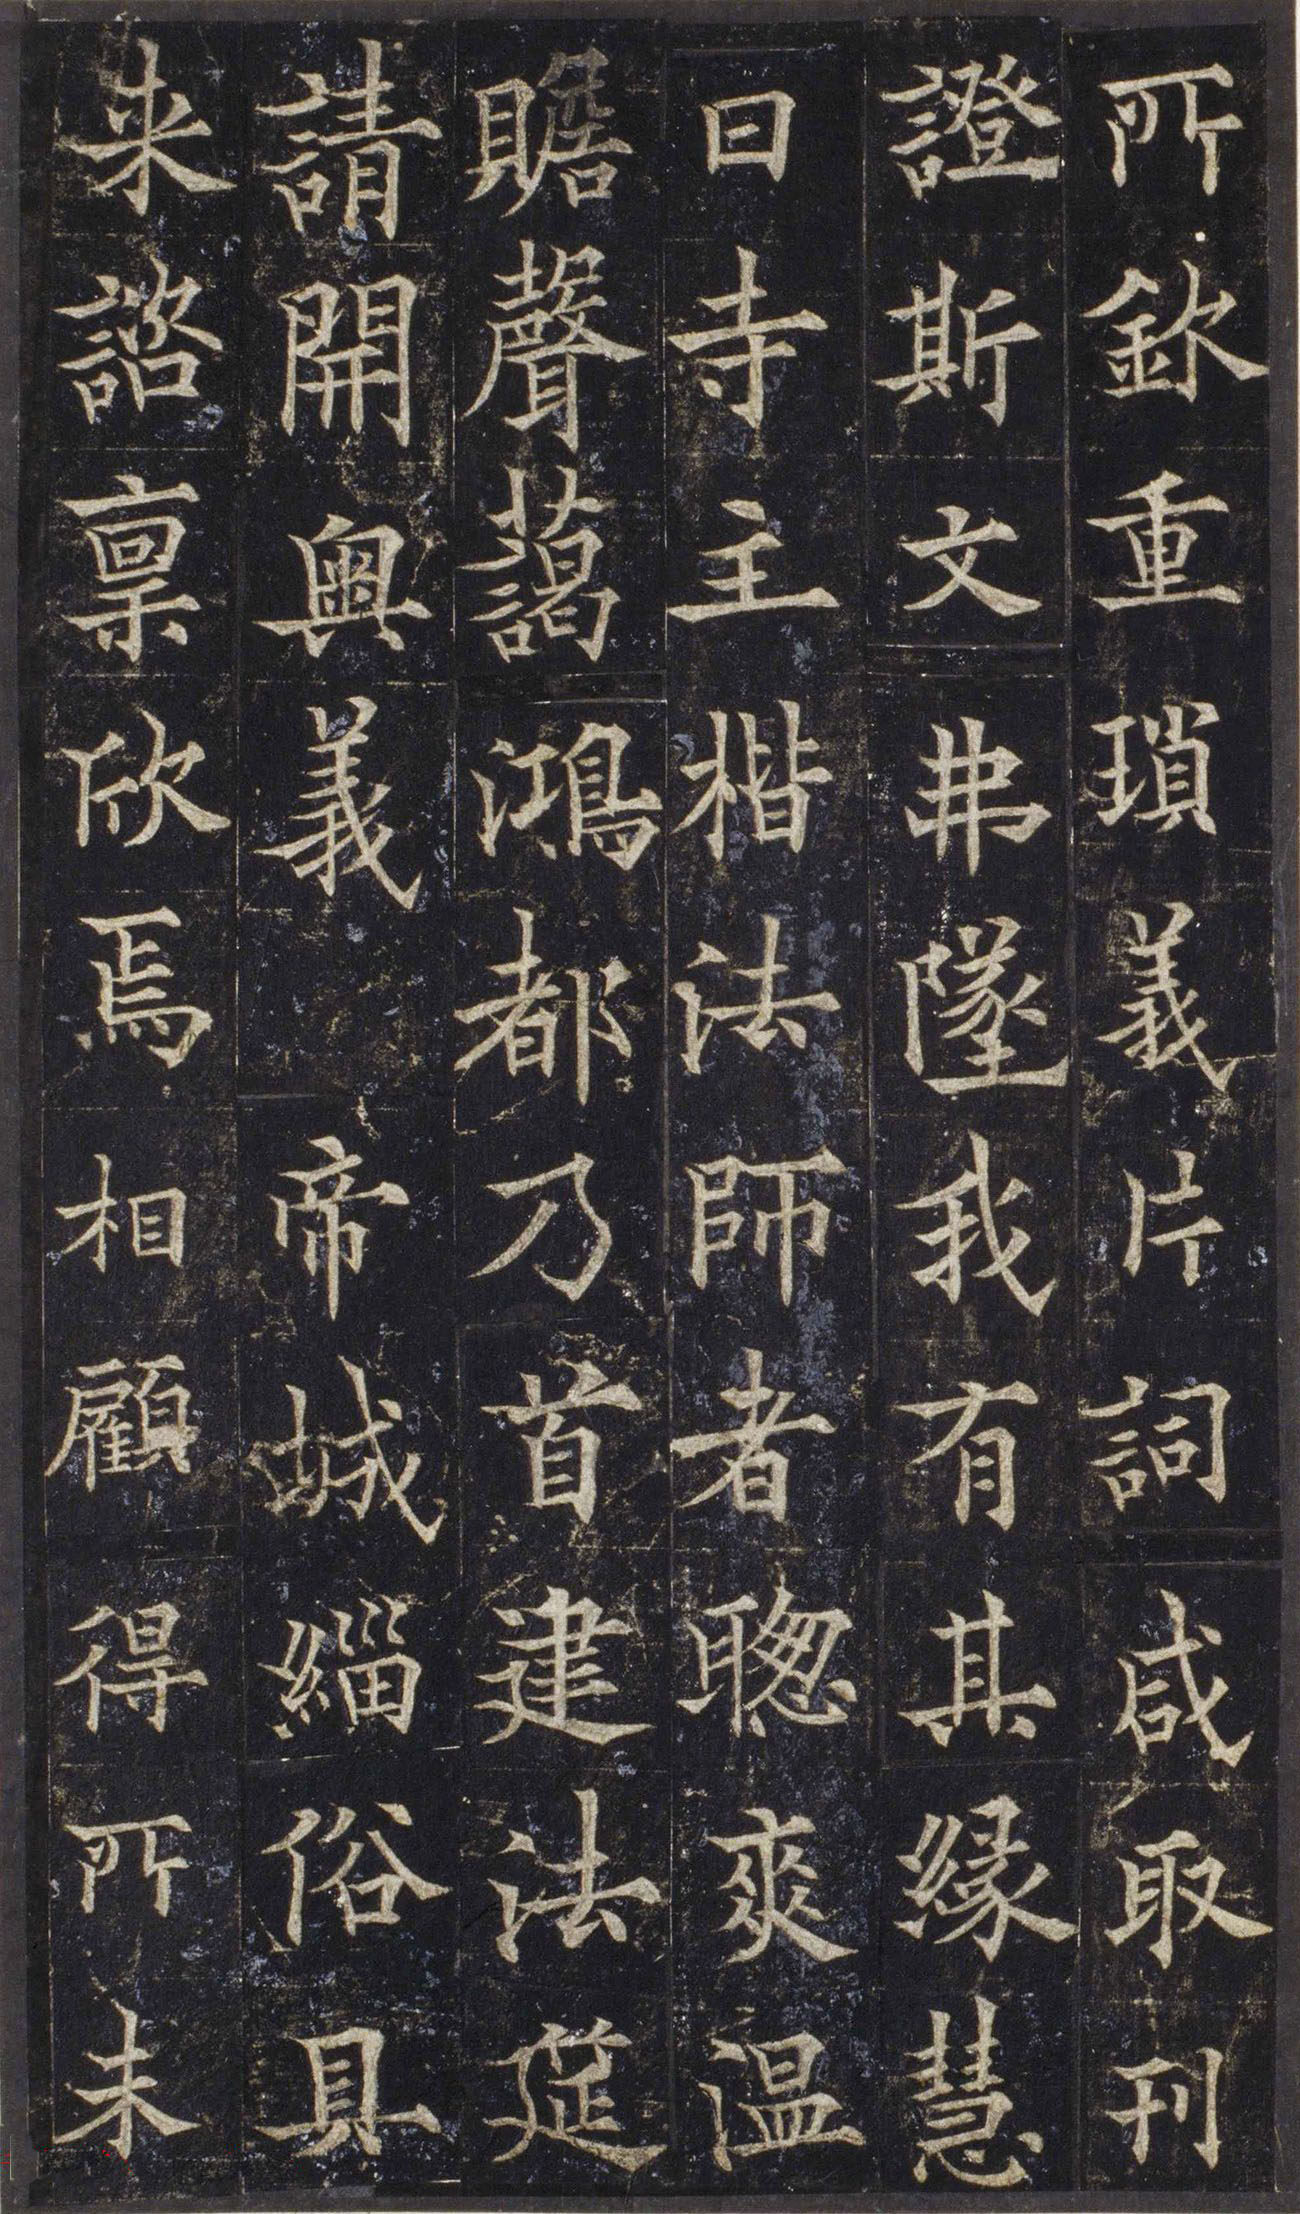 所欽重瑣義片詞咸取刊
證斯文弗墜我有其緣慧
日寺主楷法師者聰爽溫
贍聲藹鴻都乃首建法筵
請開奧義帝城緇俗具
来諮稟欣焉相顧得所未